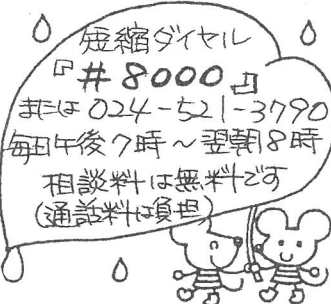 短縮ダイヤル
『#8000』
または024-521-3790
毎日午後7時～翌朝8時
相談料は無料です
(通話料は負担)